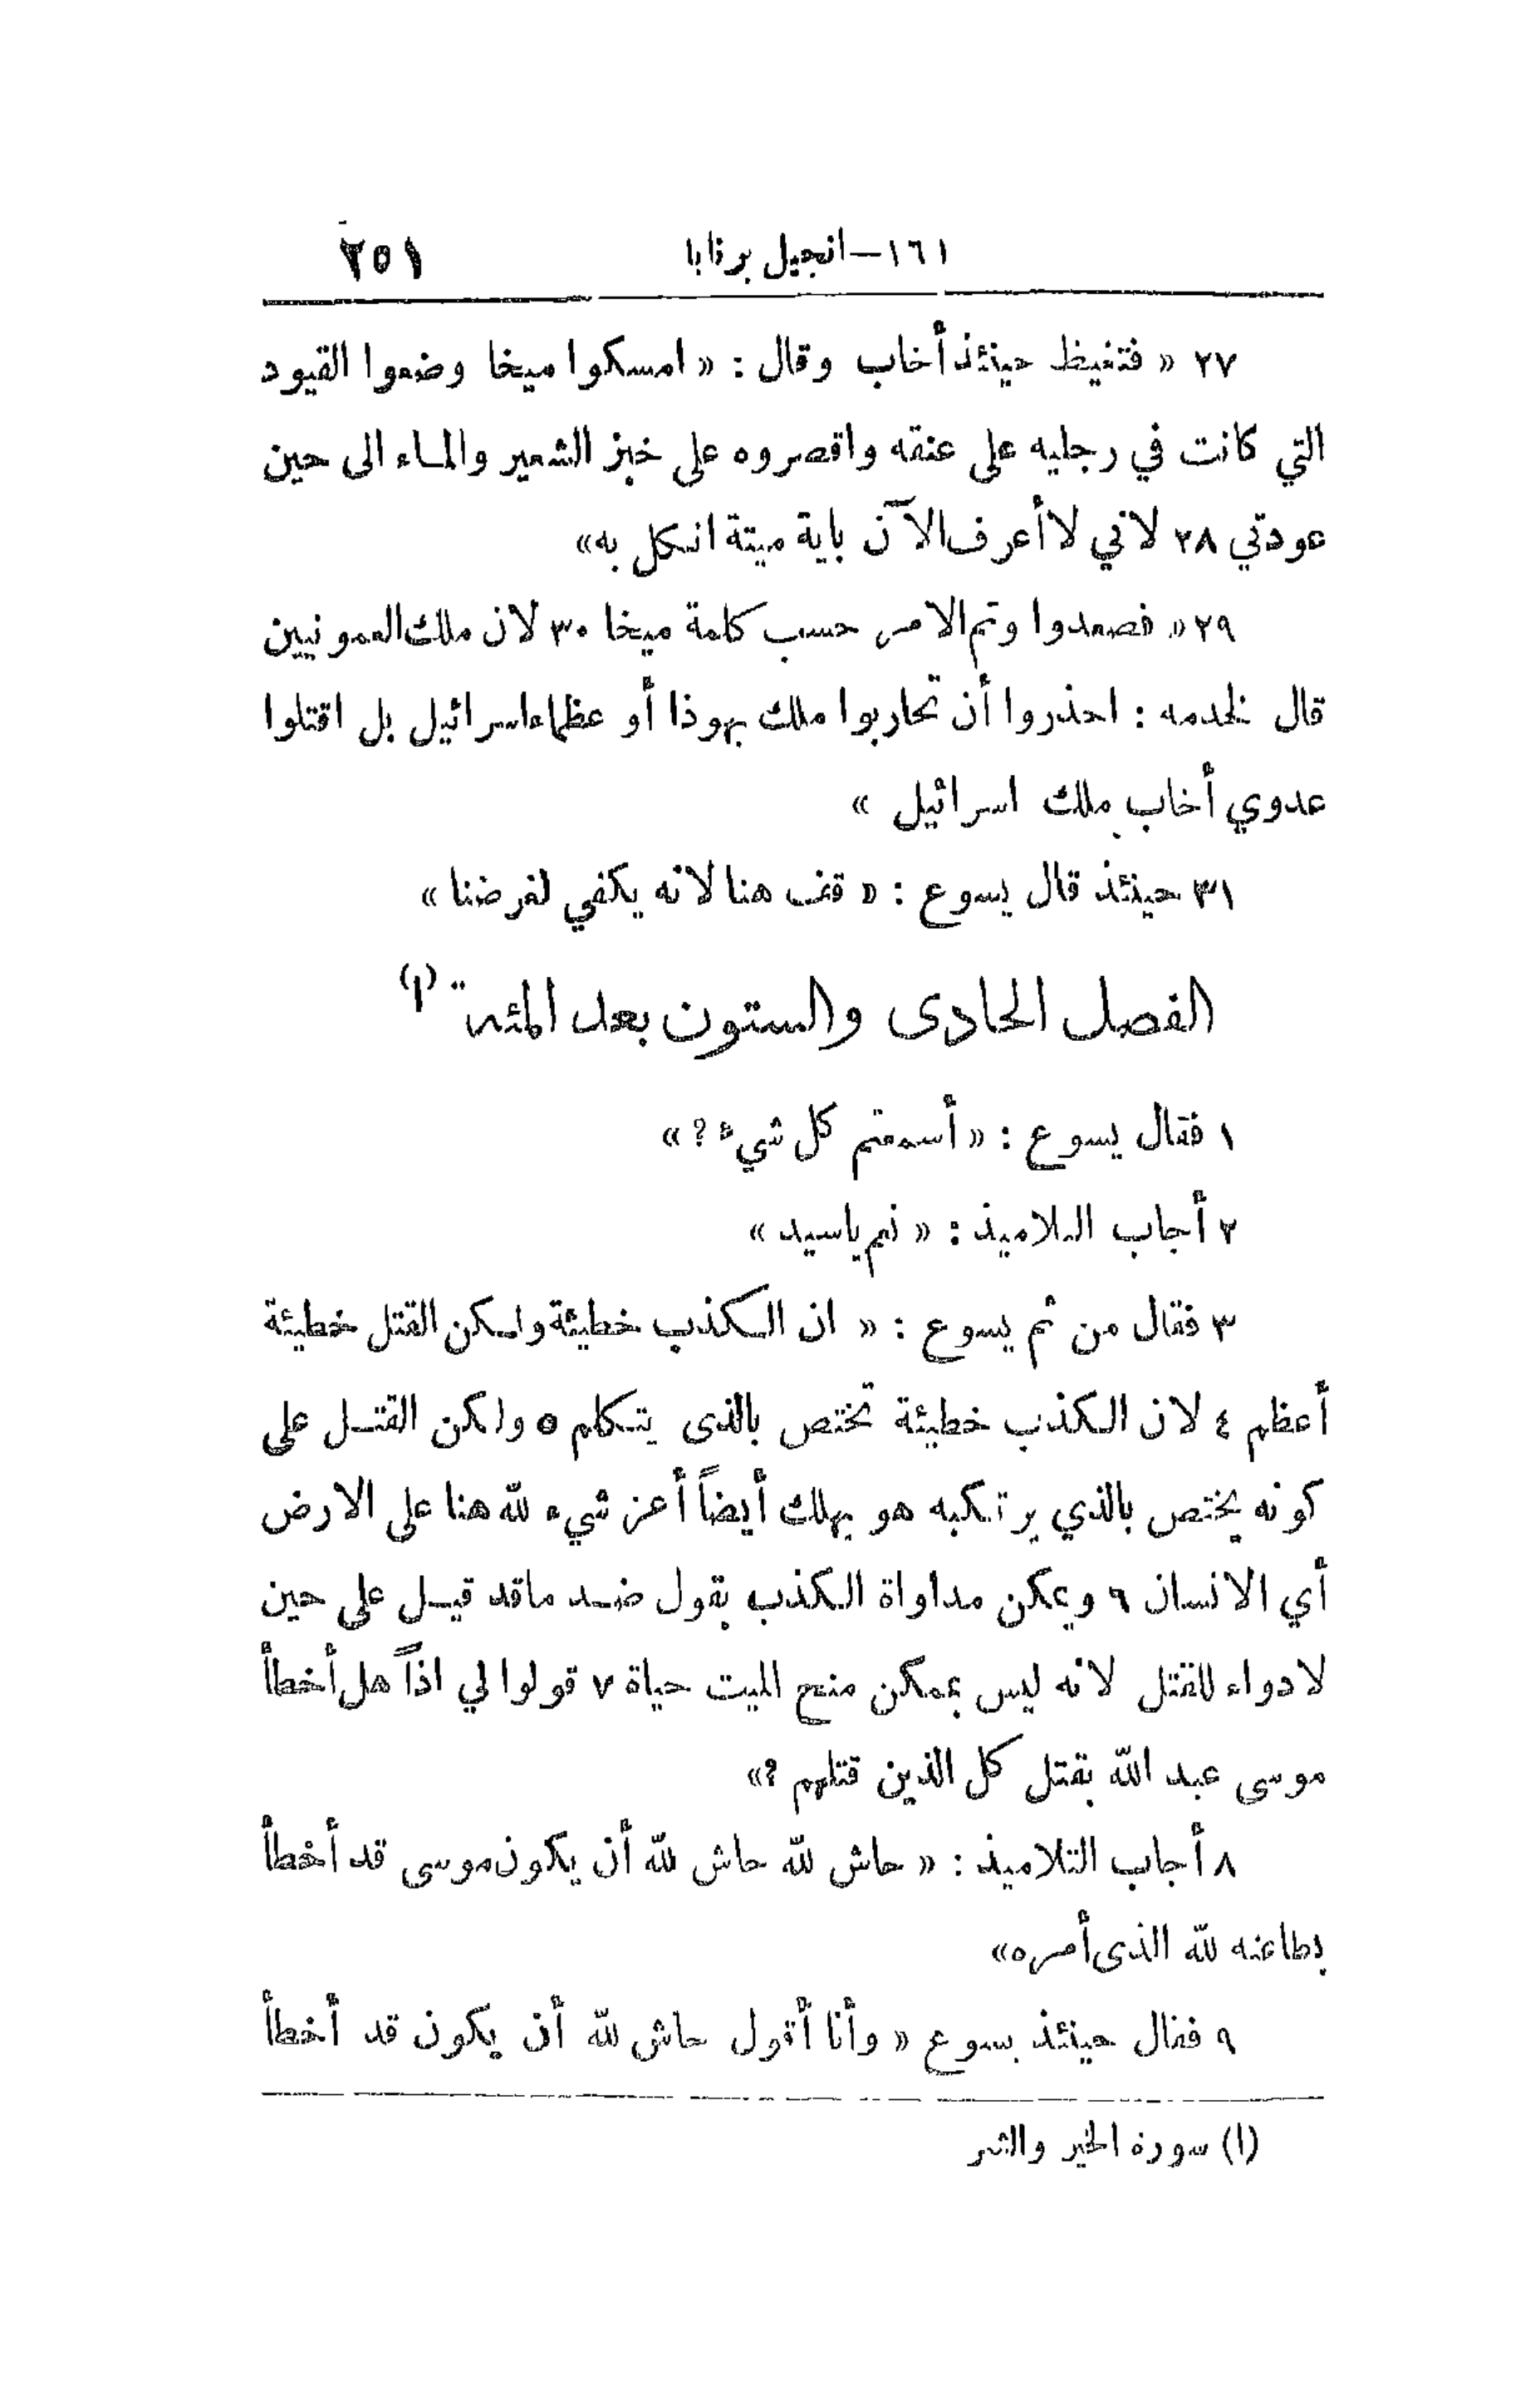 ١٦١—انجيل برنابا ٢٥١
٢٧ « فتغيظ حينئذ أخاب وقال : « امسكوا ميخا وضعوا القيود
التي كانت في رجليه على عنقه واقصروه على خبز الشعير والماء الى حين
عودتي ٢٨ لاني لا أعرف الآن باية ميتة انكل به»
٢٩ « فصعدوا وتم الامر حسب كلمة ميخا ٣٠ لان ملك العمونيين
قال لخدمه : احذروا أن تحاربوا ملك يهوذا أو عظماء اسرائيل بل اقتلوا
عدوي أخاب ملك اسرائيل »
٣١ حينئذ قال يسوع : « قف هنا لانه يكفي لغرضنا »
الفصل الحادى والستون بعد المئة (ا)
١ فقال يسوع : « أسمعتم كل شيء ؟ »
٢ أجاب التلاميذ : « نعم ياسيد »
٣ فقال من ثم يسوع : « ان الكذب خطيئة ولكن القتل خطيئة
أعظم ٤ لان الكذب خطيئة تختص بالذى يتكلم ٥ ولكن القتل على
كونه يختص بالذي يرتكبه هو يهلك أيضاً أعز شيء لله هنا على الارض
أي الانسان ٦ ويمكن مداواة الكذب بقول ضد ماقد قيل على حين
لا دواء للقتل لانه ليس بممكن منح الميت حياة ٧ قولوا لي اذاً هل أخطأ
موسى عبد الله بقتل كل الذين قتلهم ؟»
٨ أجاب التلاميذ : « حاش لله حاش لله أن يكون موسى قد أخطأ
بطاعته لله الذى أمره»
٩ فقال حينئذ يسوع « وأنا أقول حاش لله أن يكون قد أخطأ
(ا) سورة الخير والشر